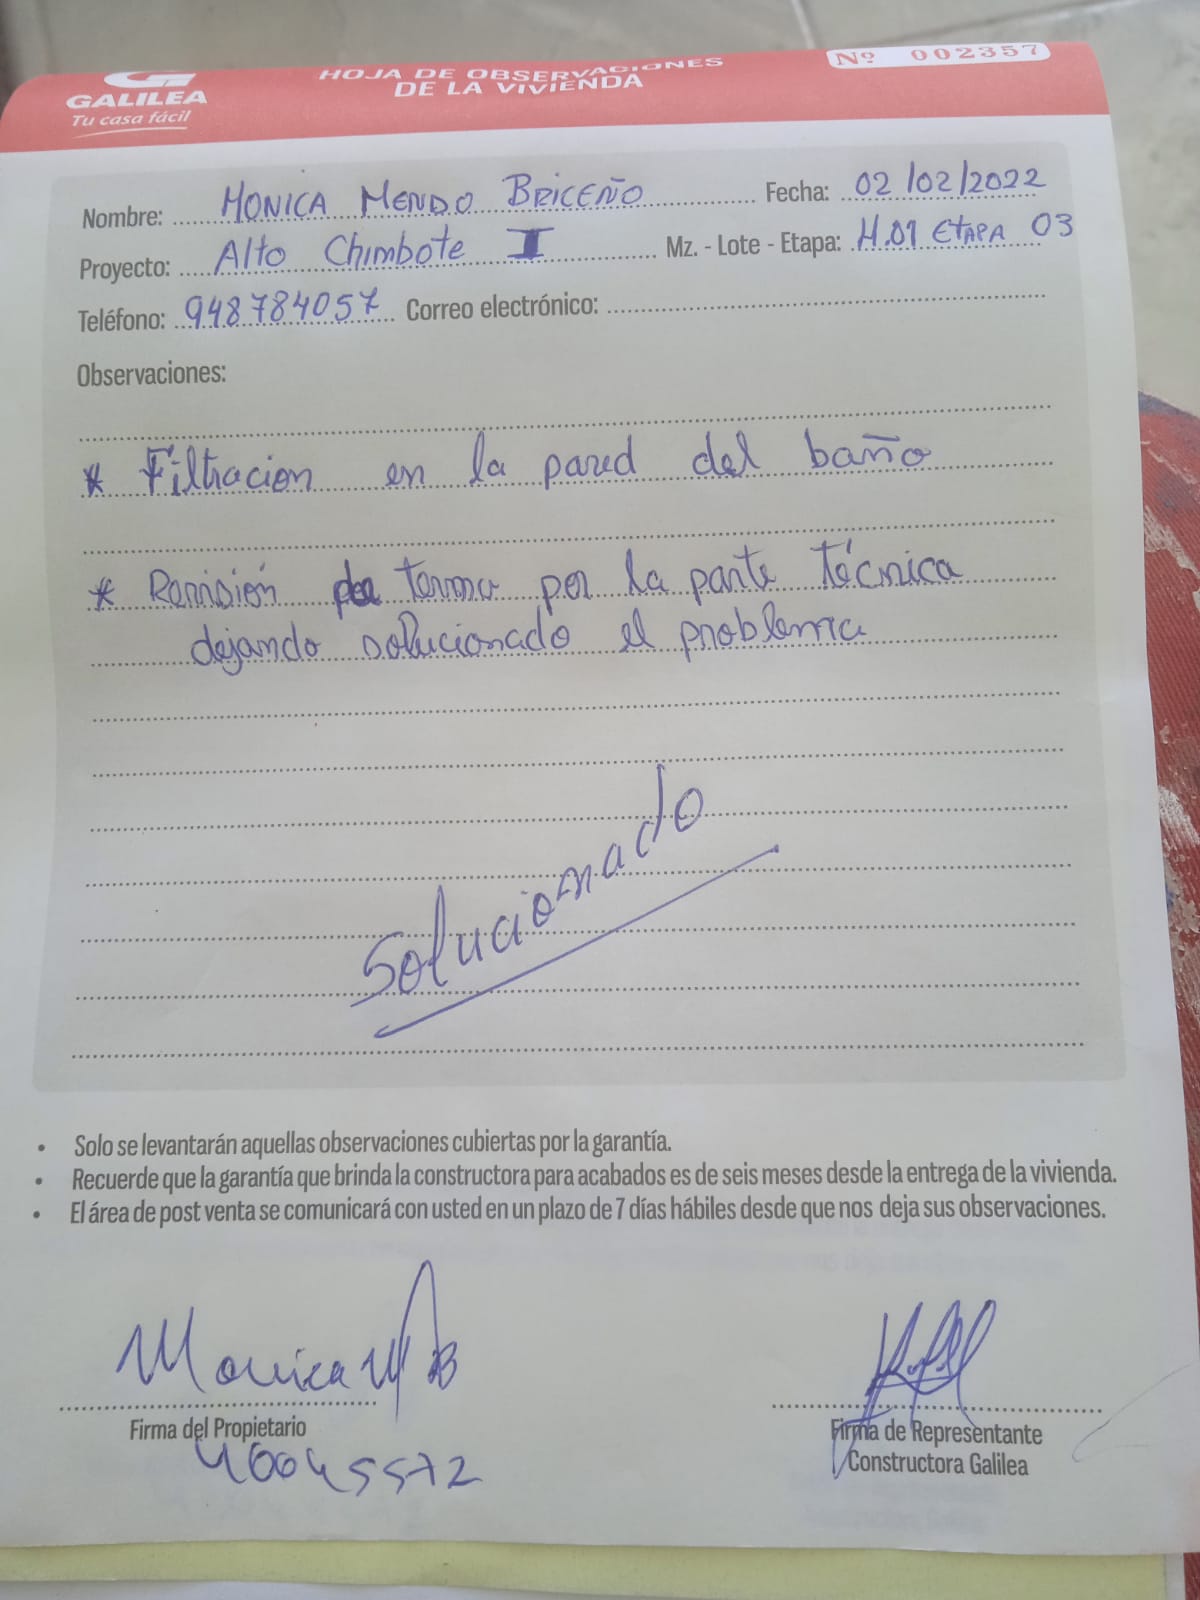 GALILEA
Tu casa fácil
HOJA DE OBSERVACIONES
DE LA VIVIENDA
Nº 002357
Nombre: MONICA MENDO BRICEÑO Fecha: 02/02/2022
Proyecto: Alto Chimbote I Mz. - Lote - Etapa: H.01 ETAPA 03
Teléfono: 948784057 Correo electrónico:
Observaciones:
* Filtracion en la pared del baño
* Revisión de terma por la parte técnica
dejando solucionado el problema
Solucionado
• Solo se levantarán aquellas observaciones cubiertas por la garantía.
• Recuerde que la garantía que brinda la constructora para acabados es de seis meses desde la entrega de la vivienda.
• El área de post venta se comunicará con usted en un plazo de 7 días hábiles desde que nos deja sus observaciones.
Monica MB
Firma del Propietario
40045572
Firma de Representante
Constructora Galilea